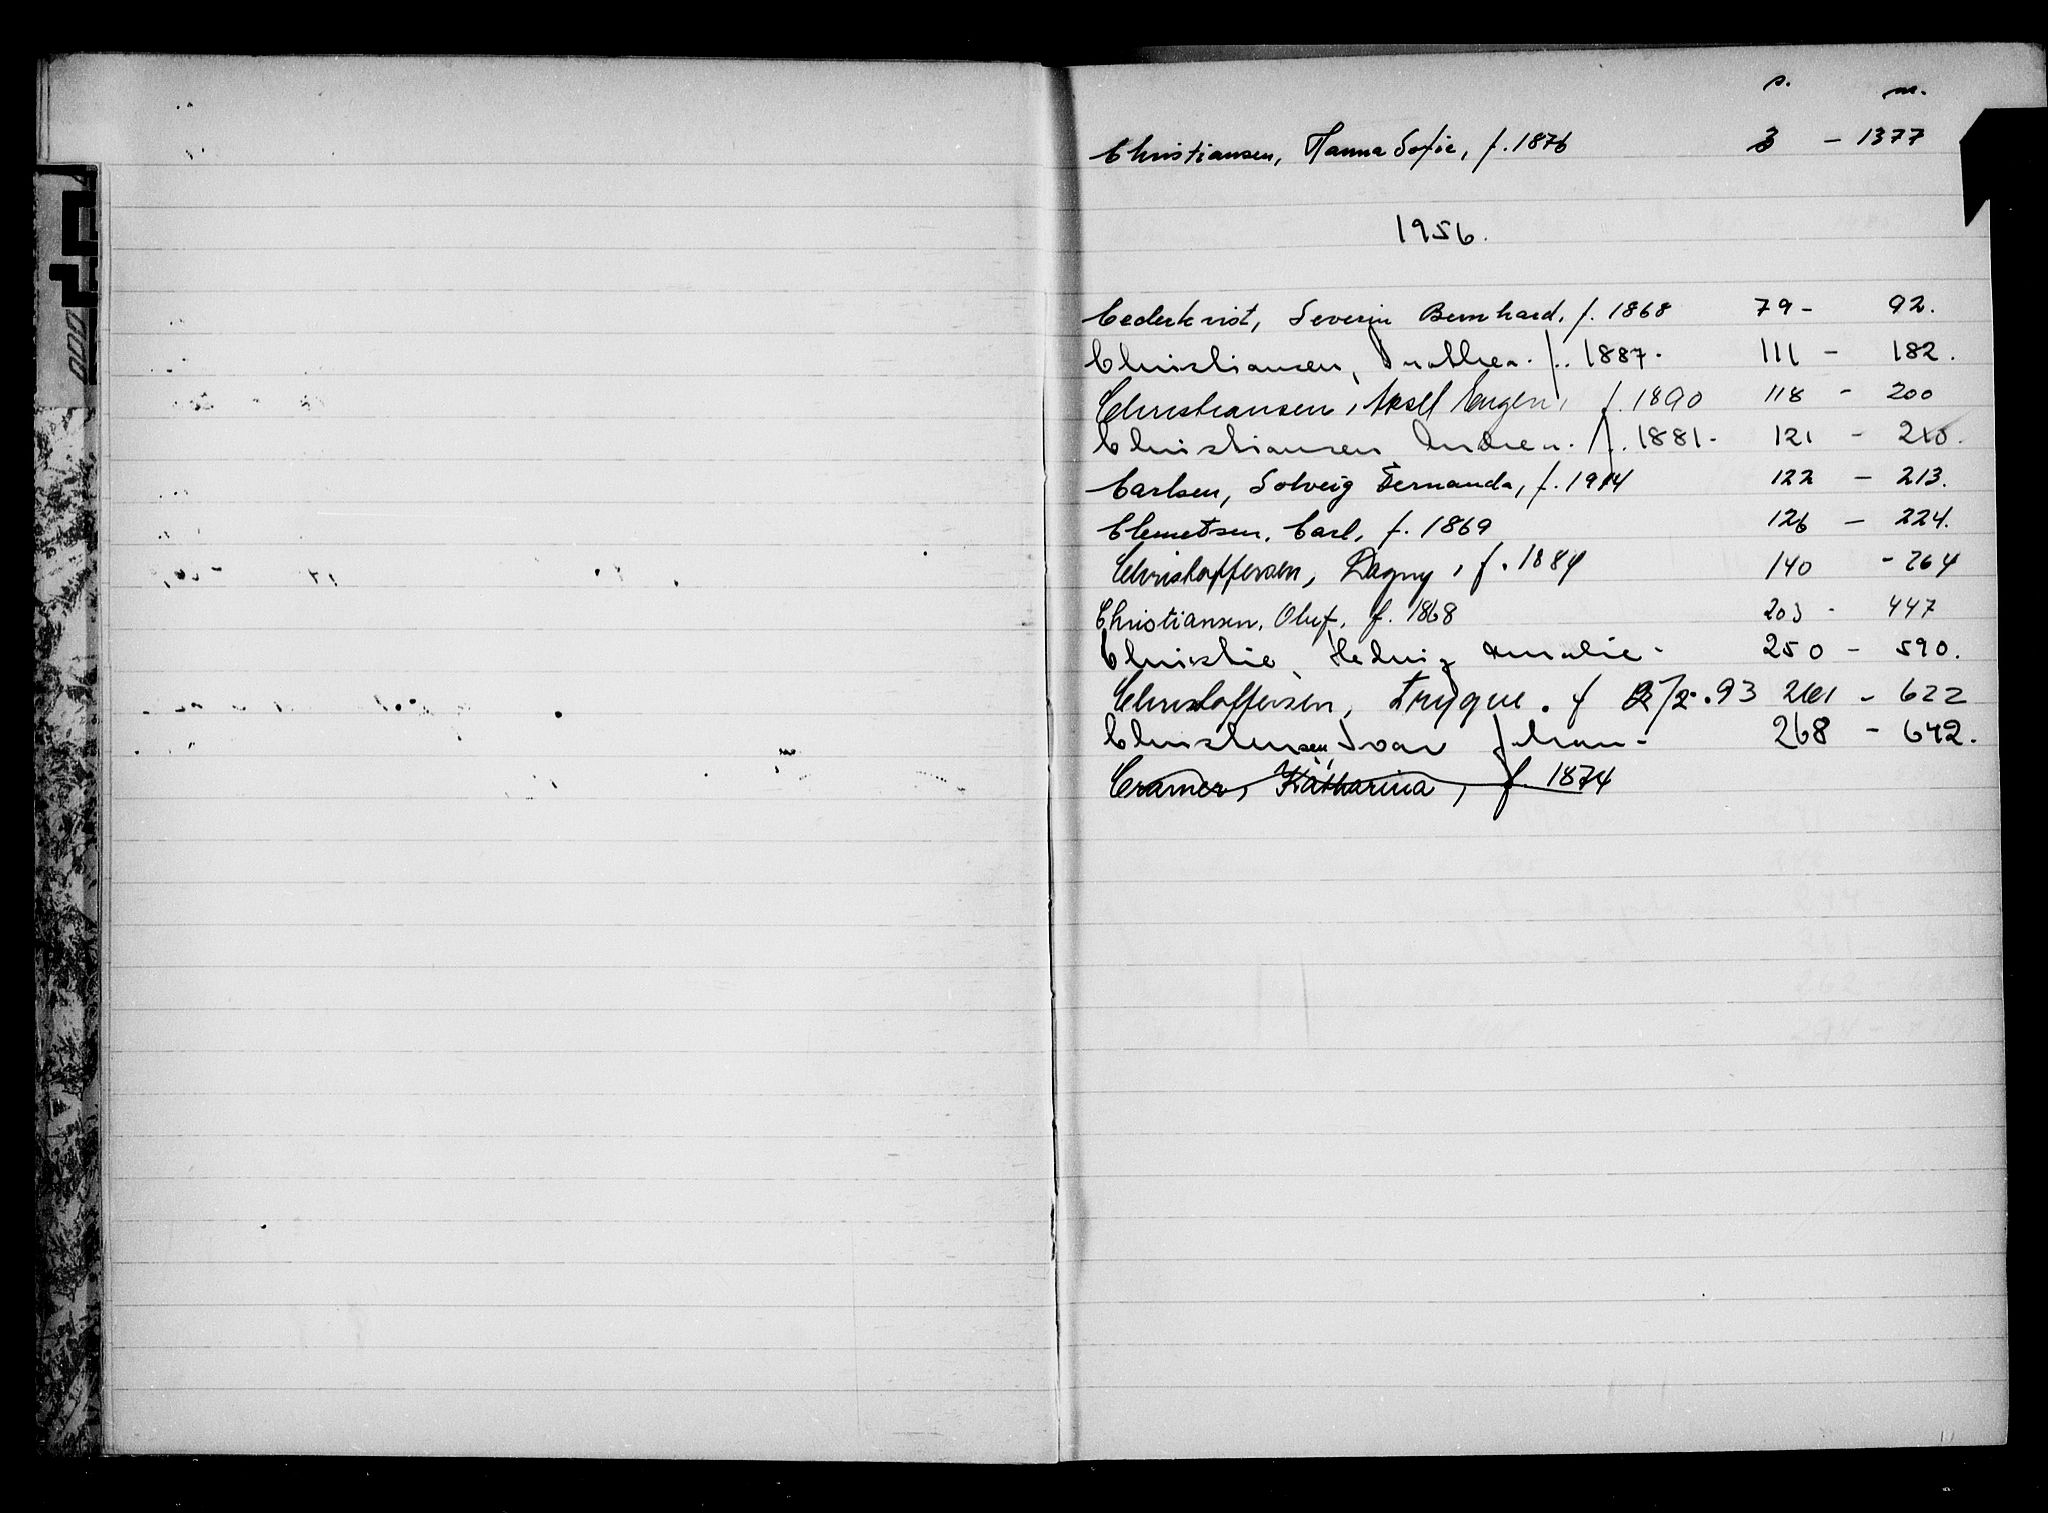 s. nr.
Christiansen, Hanna Sofie, f. 1876 3 - 1377
1956.
Cederkvist, Severin Bernhard, f. 1868 79 - 92.
Christiansen, f. 1887. 111 - 182.
Christiansen, Aksel Eugen, f. 1890 118 - 200
Christiansen Andrea. f. 1881. 121 - 210.
Carlsen, Solveig Fernanda, f. 1914 122 - 213.
Clemetsen, Carl, f. 1869 126 - 224.
Christoffersen, Dagny, f. 1884 140 - 264
Christiansen, Oluf, f. 1868 203 - 447
Christie Hedvig Amalie. 250 - 590.
Christoffersen, Trygve. f 27/2.93 261 - 622
Christensen Ivar Johan. 268 - 642.
Cramer, Katharina, f. 1874